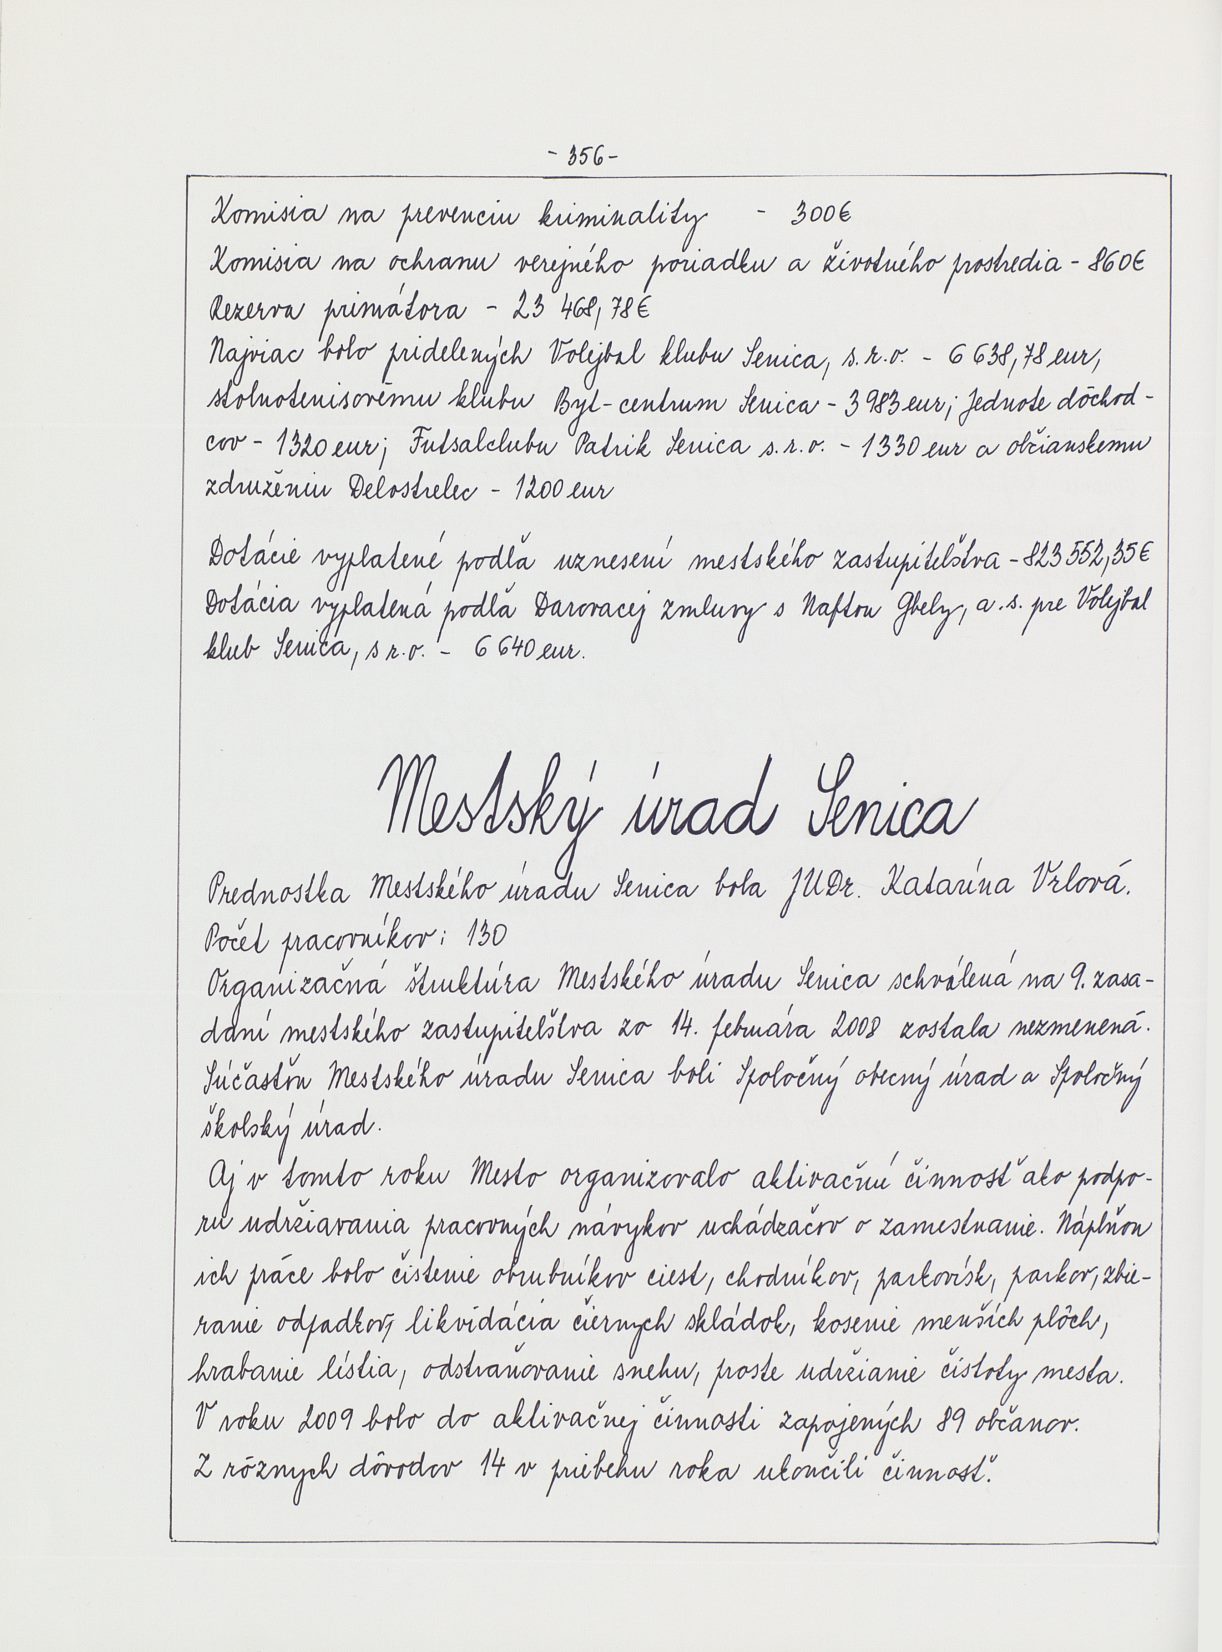 - 356 -
Komisia na prevenciu kriminality - 300€
Komisia na ochranu verejného poriadku a životného prostredia - 860€
Rezerva primátora - 23 468,78€
Najviac bolo pridelených Volejbal klubu Senica, s.r.o. - 6 638,78 eur,
stolnotenisovému klubu Byt-centrum Senica - 3 983 eur; Jednote dôchod-
cov - 1320 eur; Futsalclubu Patrik Senica s.r.o. - 1330 eur a občianskemu
združeniu Delostrelec - 1200 eur
Dotácie vyplatené podľa uznesení mestského zastupiteľstva - 823 552,35€
Dotácia vyplatená podľa Darovacej zmluvy s Naftou Gbely, a.s. pre Volejbal
klub Senica, s r.o. - 6 640 eur.
Mestský úrad Senica
Prednostka Mestského úradu Senica bola JUDr. Katarína Vrlová.
Počet pracovníkov: 130
Organizačná štruktúra Mestského úradu Senica schválená na 9. zasa-
daní mestského zastupiteľstva zo 14. februára 2008 zostala nezmenená.
Súčasťou Mestského úradu Senica boli Spoločný obecný úrad a Spoločný
školský úrad.
Aj v tomto roku Mesto organizovalo aktivačnú činnosť ako podpo-
ru udržiavania pracovných návykov uchádzačov o zamestnanie. Náplňou
ich práce bolo čistenie obrubníkov ciest, chodníkov, parkovísk, parkov, zbie-
ranie odpadkov, likvidácia čiernych skládok, kosenie menších plôch,
hrabanie lístia, odstraňovanie snehu, proste udržianie čistoty mesta.
V roku 2009 bolo do aktivačnej činnosti zapojených 89 občanov.
Z rôznych dôvodov 14 v priebehu roka ukončili činnosť.